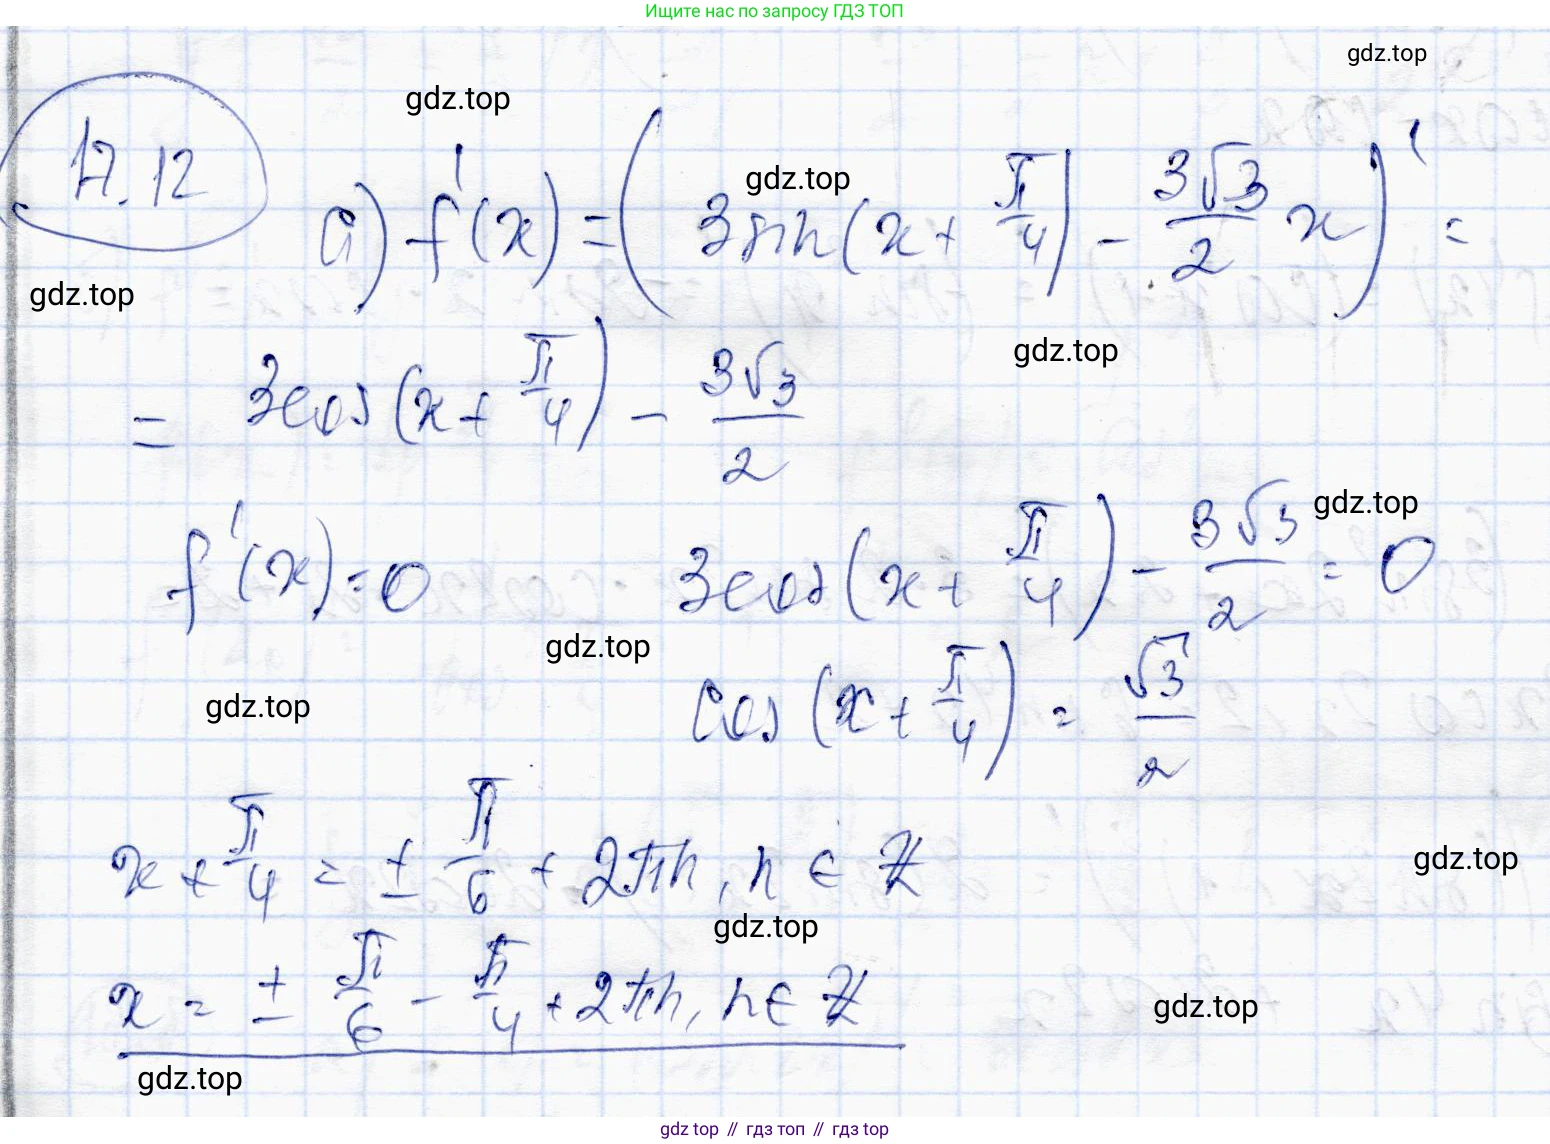 Ищите нас по запросу ГДЗ ТОП
gdz.top
gdz.top
17.12
а) f'(x) = (3sin(x + π/4) - 3√3/2 x)' =
gdz.top
gdz.top
gdz.top
= 3cos(x + π/4) - 3√3/2
f'(x) = 0 3cos(x + π/4) - 3√3/2 = 0
gdz.top
gdz.top
gdz.top
cos(x + π/4) = √3/2
x + π/4 = ± π/6 + 2πn, n ∈ Z
gdz.top
gdz.top
x = ± π/6 - π/4 + 2πn, n ∈ Z
gdz.top
gdz.top
gdz top // гдз топ // гдз top